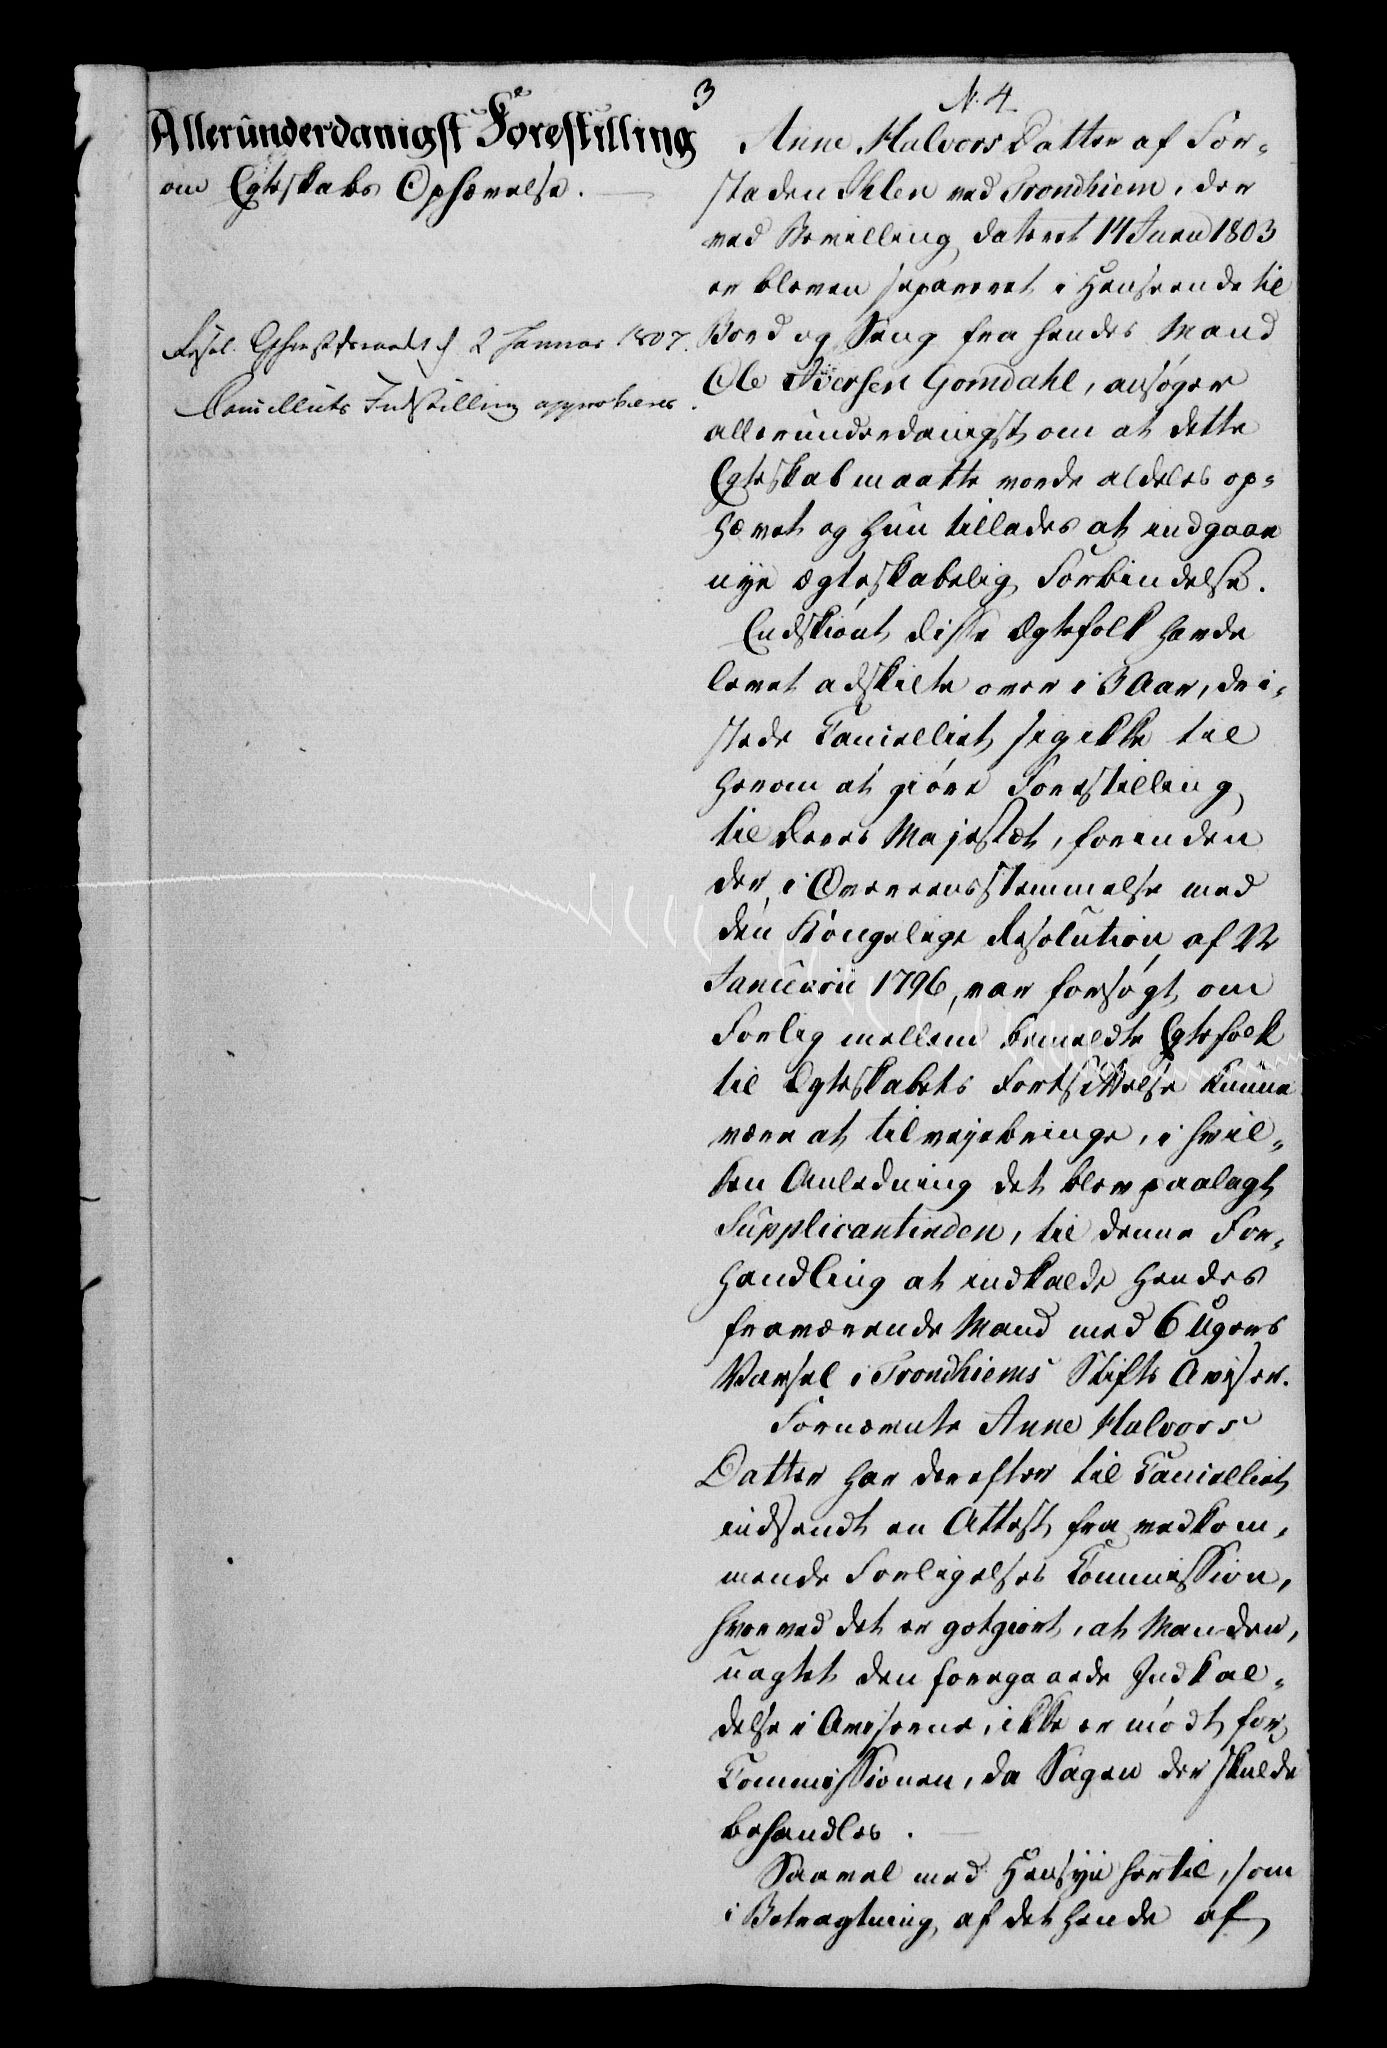 3
Allerunderdanigst Forestilling
om Egteskabs Ophævelse.
Resol. Geheimestatsraadet d 2 Januar 1807.
Cancelliets Indstilling approberes.
N. 4
Anne Halvors Datter af For-
staden Ihlen ved Trondhiem, der
ved Bevilling dateret 14 Junii 1803
er bleven separeret i Henseende til
Bord og Seng fra hendes Mand
Ole Iversen Gomdahl, ansøger
allerunderdanigst om at dette
Egteskab maatte vorde aldeles op-
hævet og hun tillades at indgaae
nye ægteskabelig Forbindelse.
Endskiønt disse Egtefolk havde
levet adskilte over i 3 Aar, dri-
stede Cancelliet sig ikke til
herom at giøre Forestilling
til Deres Majestæt, forinden
der, i Overeensstemmelse med
den Kongelige Resolution af 22
Januarii 1796, var forsøgt om
Forlig mellem bemeldte Egtefolk
til Egteskabets Fortsættelse kunne
være at tilvejebringe, i hvil-
ken Anledning det blev paalagt
Supplicantinden, til denne For-
handling at indkalde hendes
fraværende Mand med 6 Ugers
Varsel i Trondhiems Stifts Aviser.
Fornævnte Anne Halvors
Datter har derefter til Cancelliet
indsendt en Attest fra vedkom-
mende Forligelses Commission,
hvorved det er gotgiort, at Manden,
uagtet den foregaaede Indkal-
delse i Aviserne, ikke er mødt for
Commissionen, da Sagen der skulde
behandles.
Saavel med Hensyn hertil, som
i Betragtning af det hende af